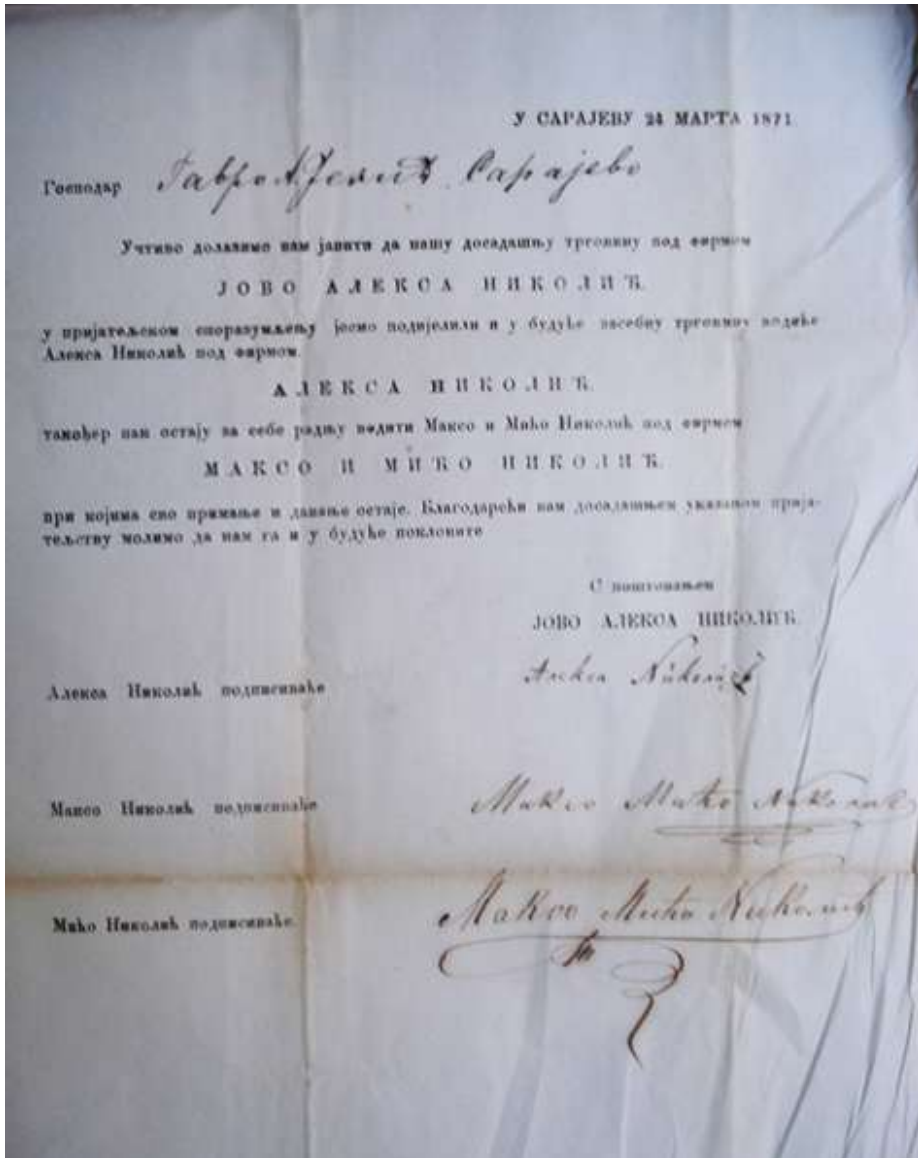 У САРАЈЕВУ 24 МАРТА 1871
Господар Гавро А. Јелић Сарајево
Учтиво долазимо вам јавити да нашу досадашњу трговину под фирмом
ЈОВО АЛЕКСА НИКОЛИЋ.
у пријатељском споразумљењу јесмо подијелили и у будуће засебну трговину водиће
Алекса Николић под фирмом.
АЛЕКСА НИКОЛИЋ.
такођер пак остају за себе радњу водити Максо и Мићо Николић под фирмом
МАКСО И МИЋО НИКОЛИЋ.
при којима сво примање и давање остаје. Благодарећи вам досадашњем указаном прија-
тељству молимо да нам га и у будуће поклоните
С поштовањем
ЈОВО АЛЕКСА НИКОЛИЋ.
Алекса Николић подписиваће Алекса Николић
Максо Николић подписиваће Максо Мићо Николић
Мићо Николић подписиваће. Максо Мићо Николић